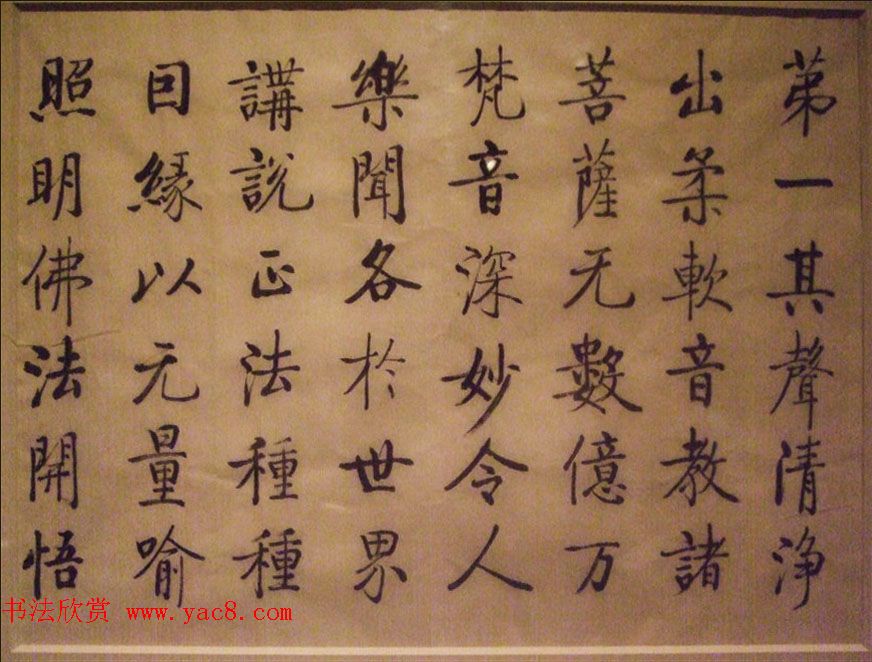 苐一其聲清淨
出柔軟音教諸
菩薩无數億万
梵音深妙令人
樂聞各於世界
講說正法種種
囙緣以无量喻
照明佛法開悟
书法欣赏 www.yac8.com